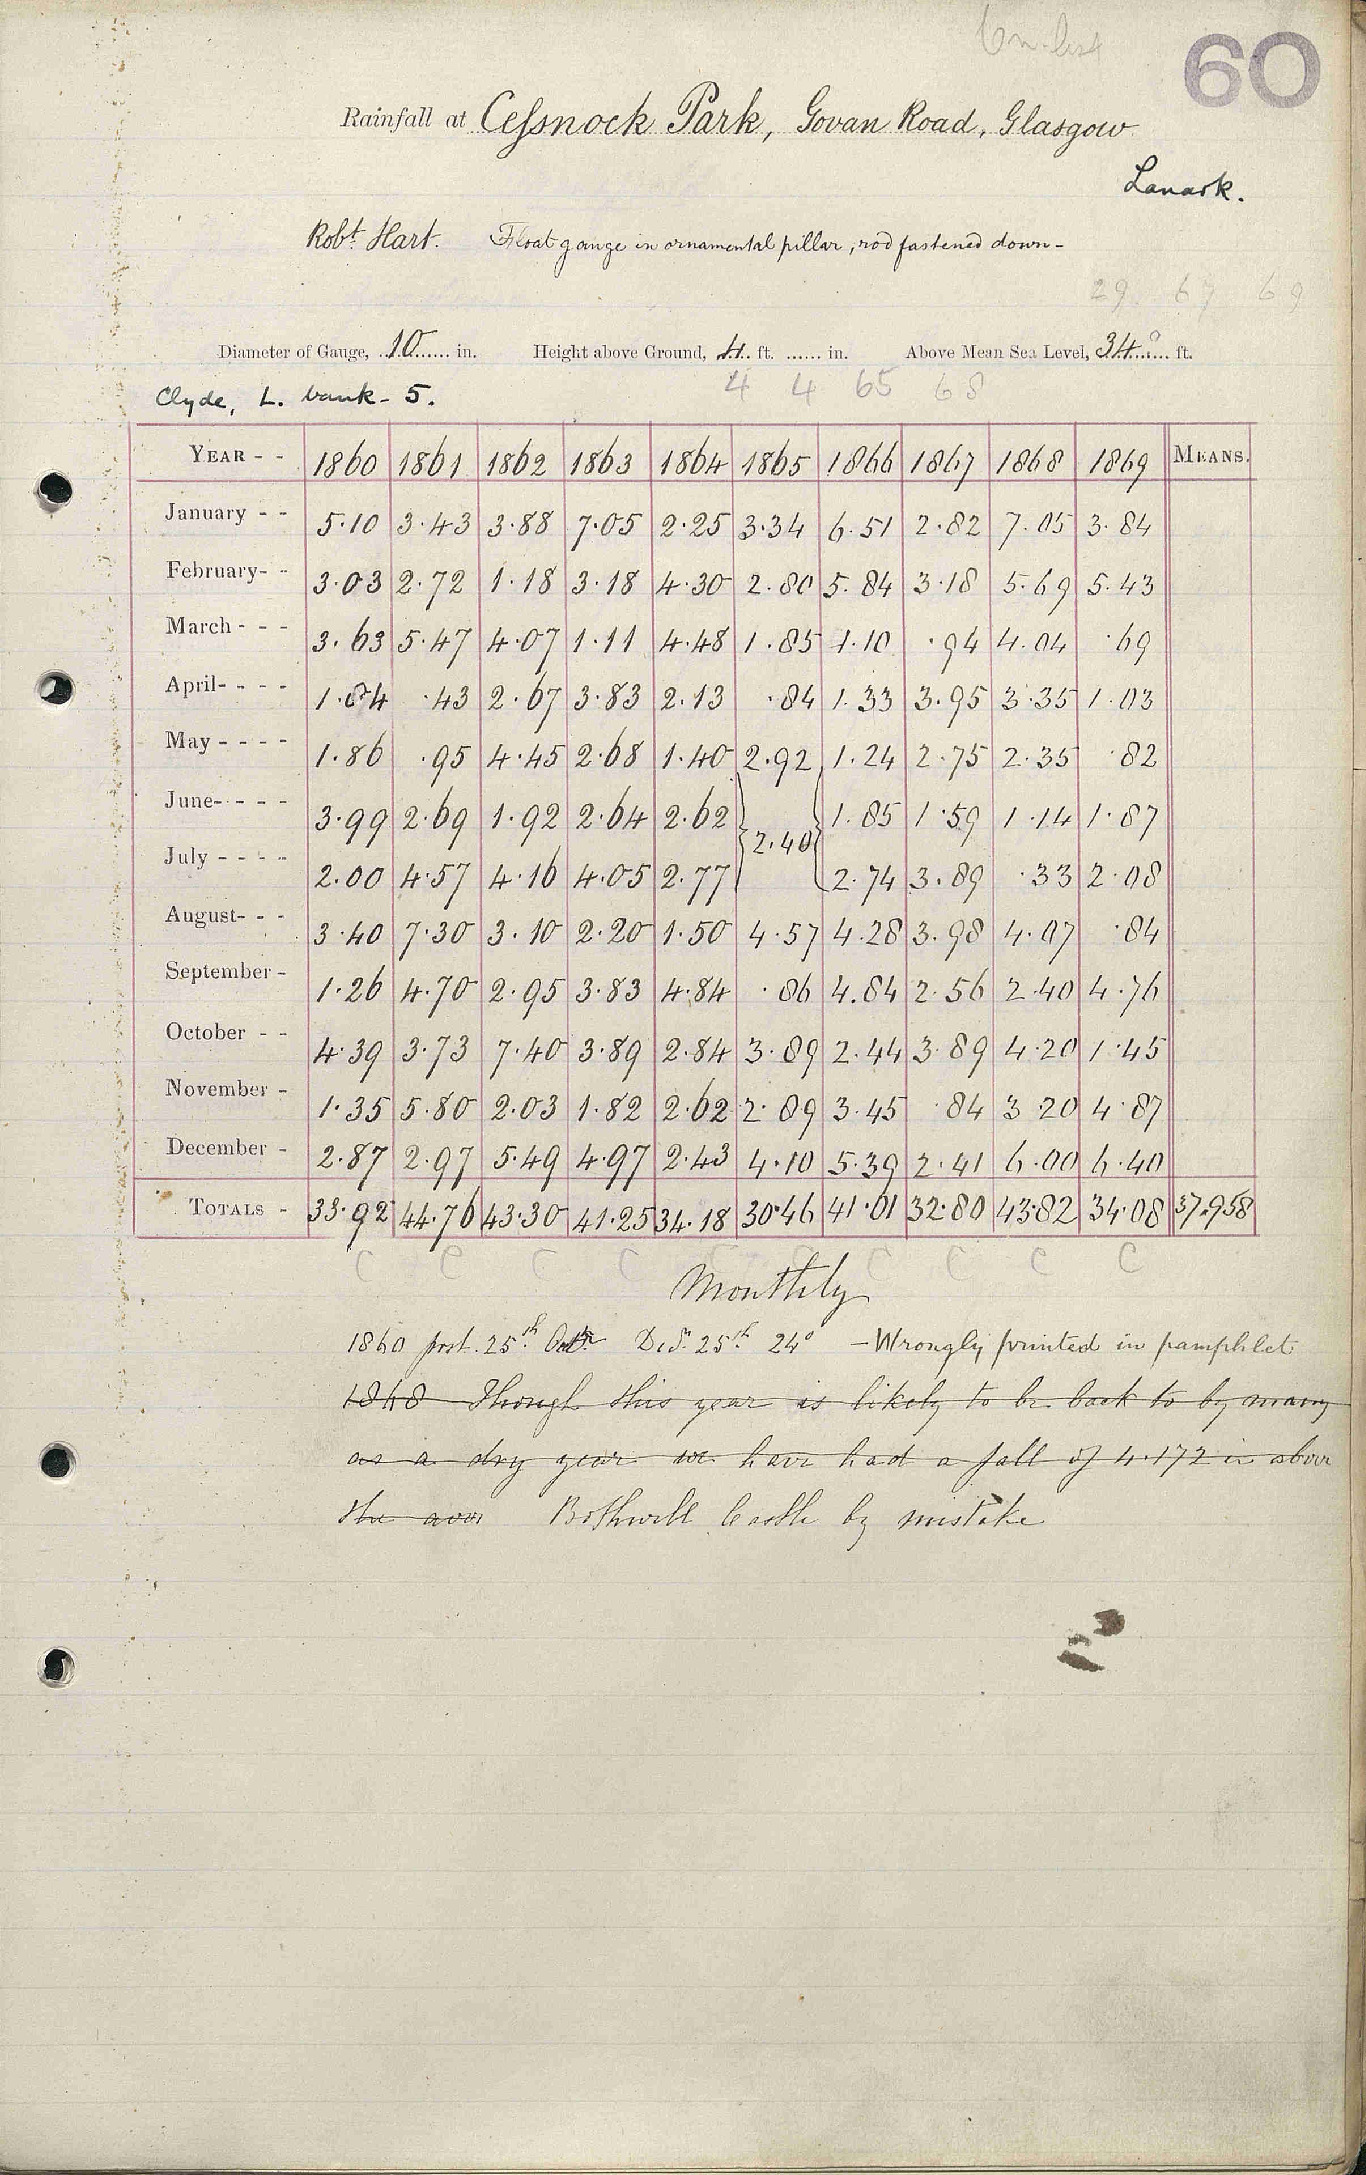 60
Rainfall at Cessnock Park, Govan Road, Glasgow
Lanark.
Robt. Hart. Float gauge in ornamental pillar, rod fastened down -
29. 67 69
Diameter of Gauge, 10 in. Height above Ground, 4 ft. ...... in. Above Mean Sea Level, 34 ft.
4 4 65 68
Clyde, L. bank - 5.
YEAR - - 1860 1861 1862 1863 1864 1865 1866 1867 1868 1869 MEANS.
January - - 5.10 3.43 3.88 7.05 2.25 3.34 6.51 2.82 7.05 3.84
February- - 3.03 2.72 1.18 3.18 4.30 2.80 5.84 3.18 5.69 5.43
March - - - 3.63 5.47 4.07 1.11 4.48 1.85 1.10 .94 4.04 .69
April- - - - 1.04 .43 2.67 3.83 2.13 .84 1.33 3.95 3.35 1.03
May - - - - 1.86 .95 4.45 2.68 1.40 2.92 1.24 2.75 2.35 .82
June- - - - 3.99 2.69 1.92 2.64 2.62 1.85 1.59 1.14 1.87
2.40
July - - - - 2.00 4.57 4.16 4.05 2.77 2.74 3.89 .33 2.08
August- - - 3.40 7.30 3.10 2.20 1.50 4.57 4.28 3.98 4.07 .84
September - 1.26 4.70 2.95 3.83 4.84 .86 4.84 2.56 2.40 4.76
October - - 4.39 3.73 7.40 3.89 2.84 3.89 2.44 3.89 4.20 1.45
November - 1.35 5.80 2.03 1.82 2.62 2.89 3.45 .84 3.20 4.87
December - 2.87 2.97 5.49 4.97 2.43 4.10 5.39 2.41 6.00 6.40
TOTALS - 33.92 44.76 43.30 41.25 34.18 30.46 41.01 32.80 43.82 34.08 37.958
C C C C C C C C
Monthly
1860 25th Decr. 25th 24° - Wrongly printed in pamphlet
1868 Though this year is likely to be back to by many
as a dry year we have had a fall of 4.172 in above
the aver Bothwell Castle by mistake